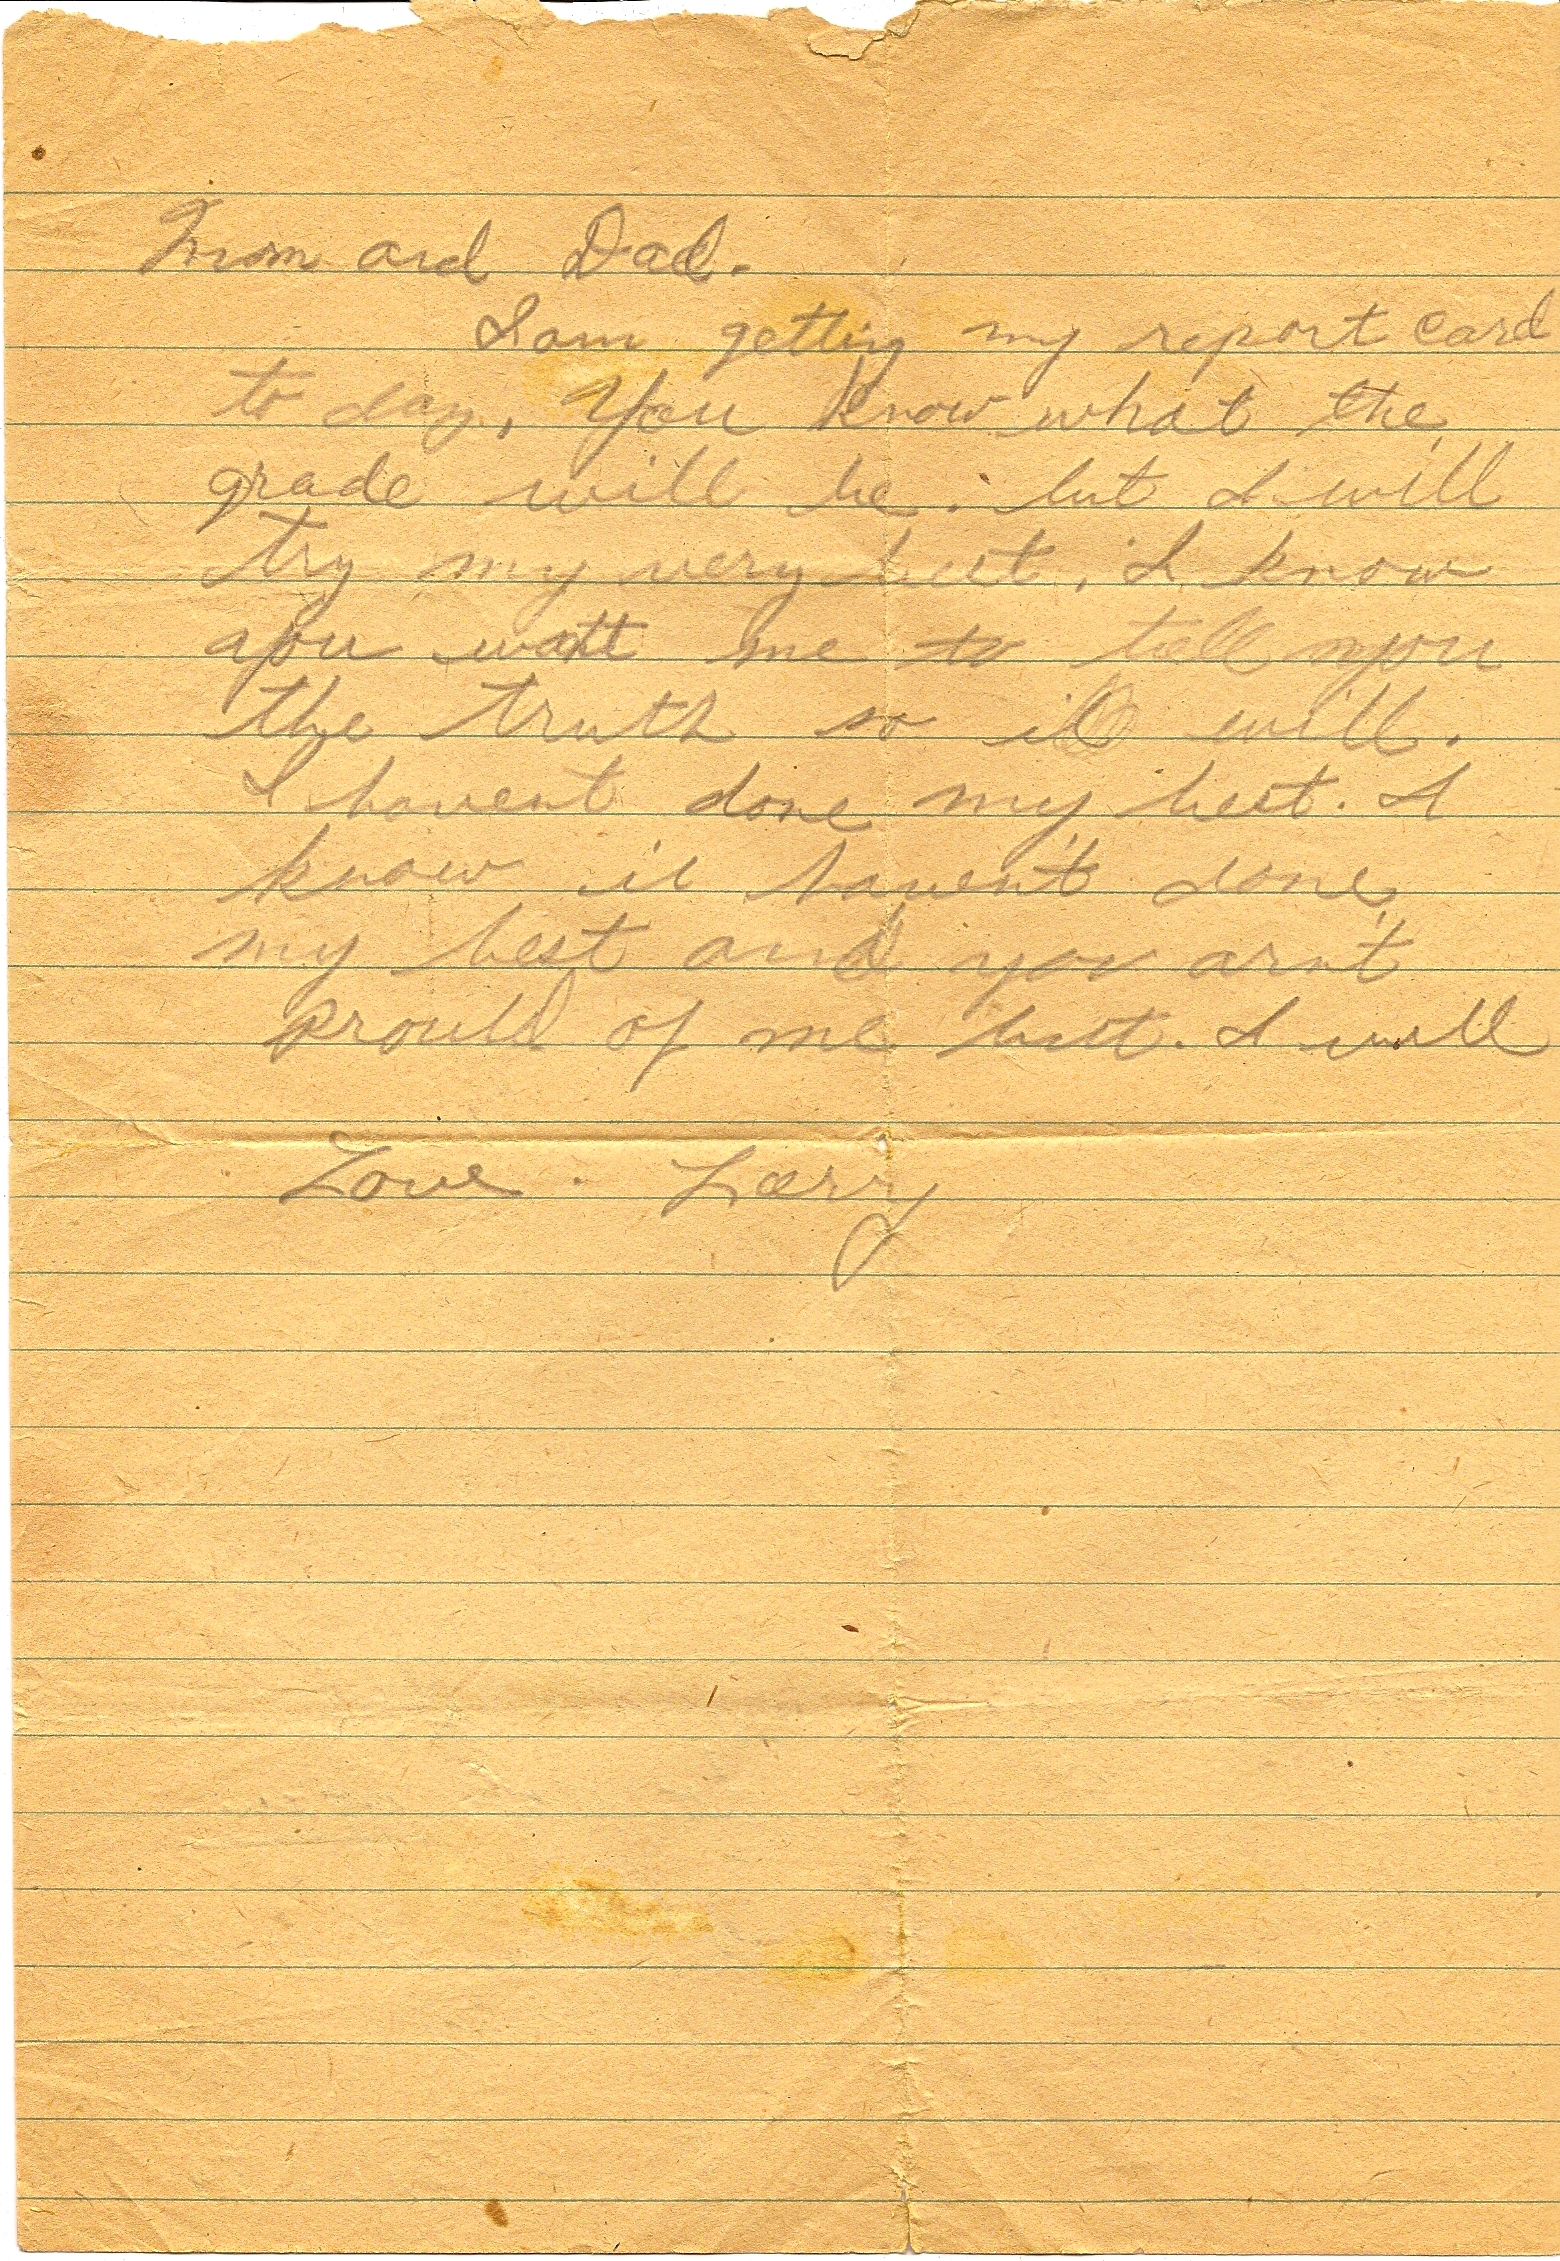 Mom and Dad.
I am getting my report card
to day, You know what the
grade will be. but I will
try my very best. I know
you watt me to tell you
the truth so il will.
I havent done my best. I
know il haven't done
my best and you arn't
proud of me but. I will
Love. Larry